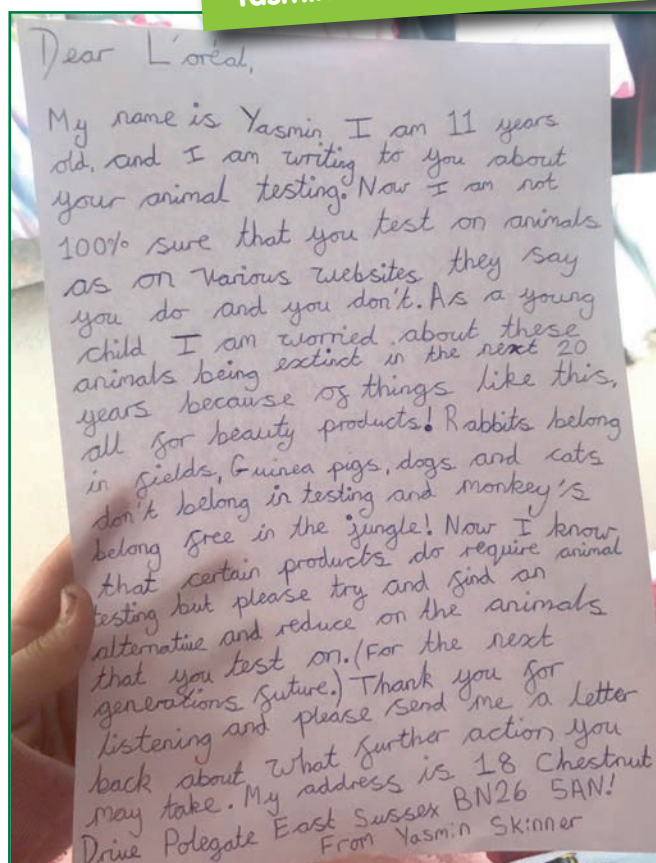 Yasmin
Dear L'oréal,
My name is Yasmin I am 11 years
old, and I am writing to you about
your animal testing. Now I am not
100% sure that you test on animals
as on various websites they say
you do and you don't. As a young
child I am worried about these
animals being extinct in the next 20
years because of things like this,
all for beauty products! Rabbits belong
in fields, Guinea pigs, dogs and cats
don't belong in testing and monkey's
belong free in the jungle! Now I know
that certain products do require animal
testing but please try and find an
alternative and reduce on the animals
that you test on. (For the next
generations future.) Thank you for
listening and please send me a letter
back about what further action you
may take. My address is 18 Chestnut
Drive Polegate East Sussex BN26 5AN!
From Yasmin Skinner